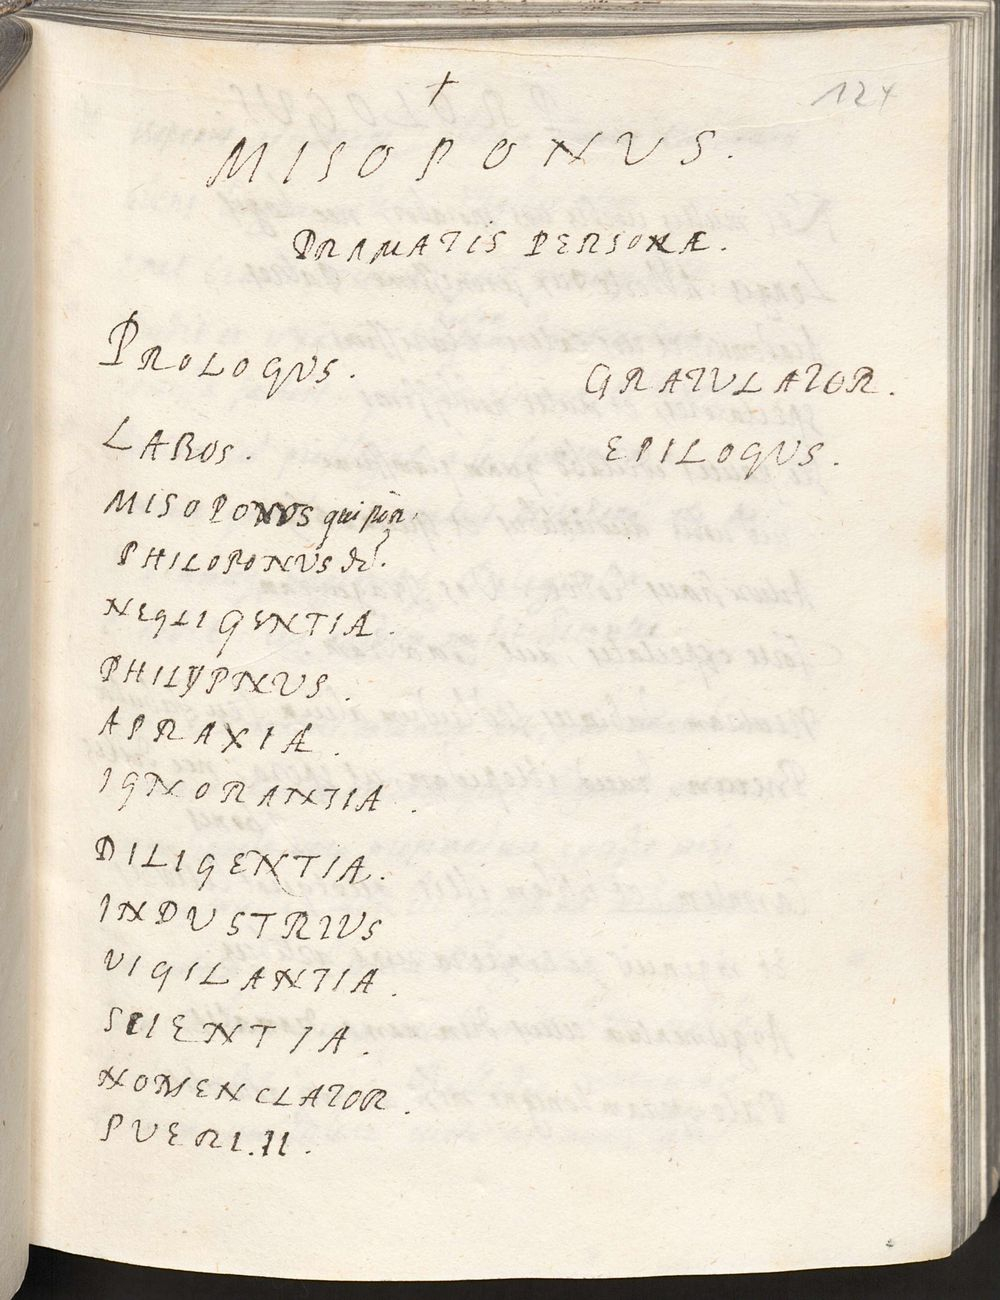 124
†
MISOPONUS.
DRAMATIS PERSONÆ.
PROLOGUS.
LABOS.
MISOPONUS qui
PHILOPONUS
NEGLIGENTIA.
PHILYPNUS.
APRAXIA.
IGNORANTIA.
DILIGENTIA.
INDUSTRIUS
VIGILANTIA.
SCIENTIA.
NOMENCLATOR.
PUERI. II.
GRATULATOR.
EPILOGUS.